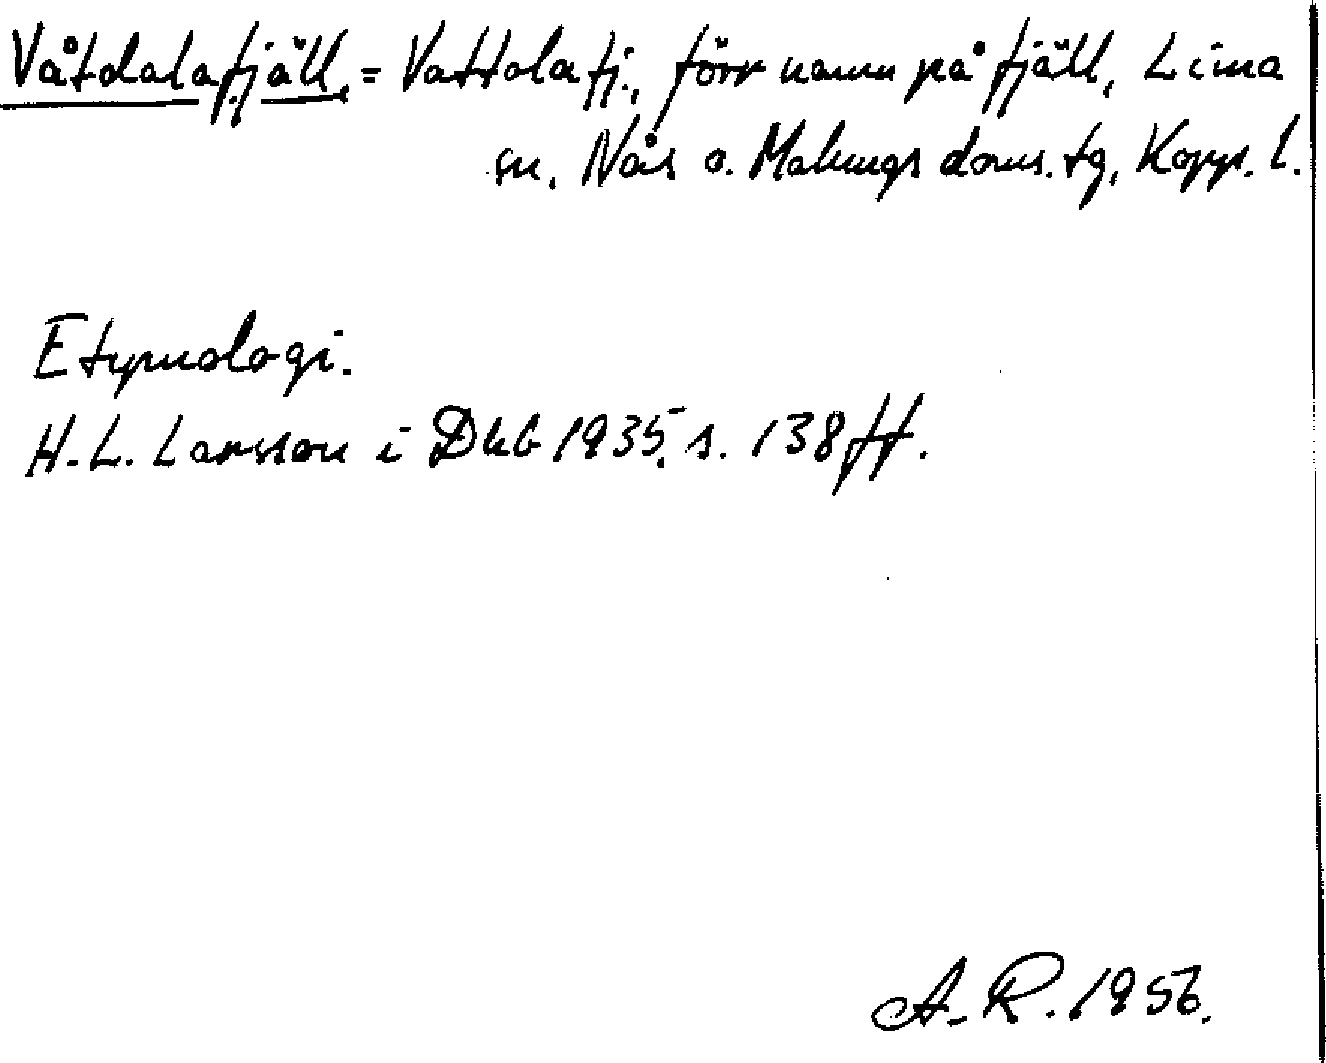 Våtdalafjäll, = Vattolafj., förr namn på fjäll, Lima
sn, Nås o. Malungs doms. tg, Kopp. l.
Etymologi.
H. L. Larsson i Dhb 1935, s. 138 ff.
A. R. 1956.